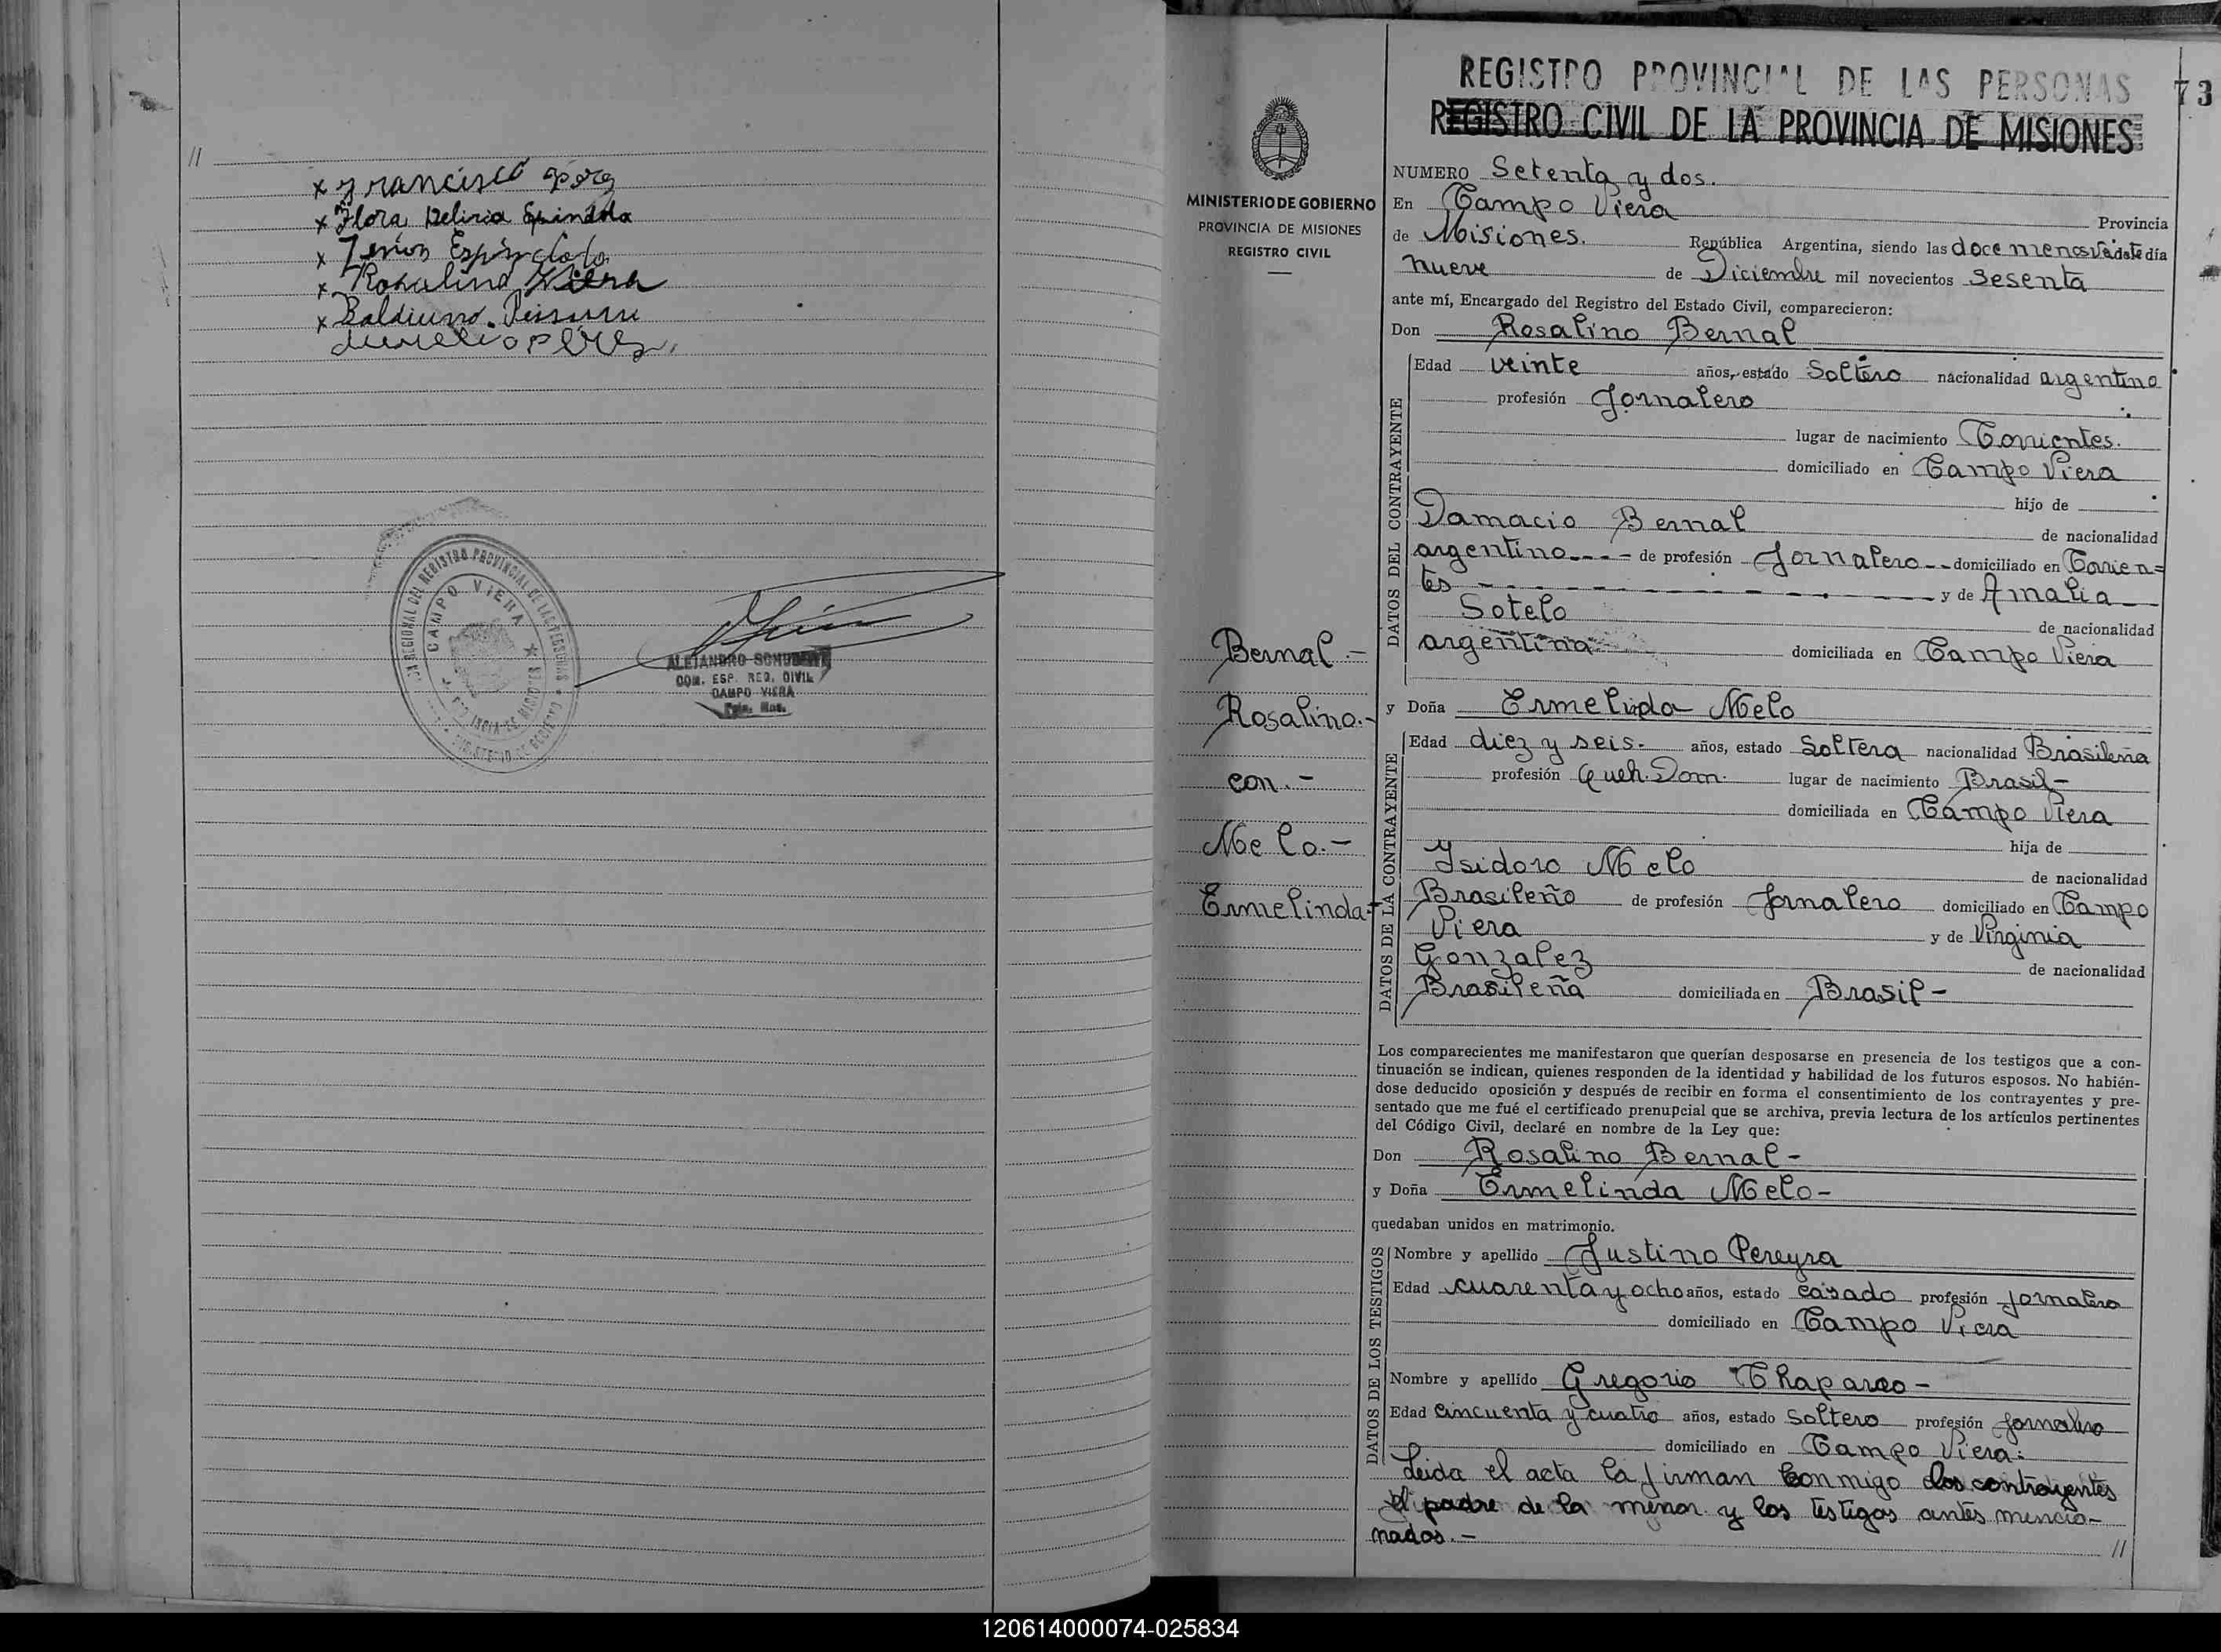 //
x Francisco Pérez
x Flora Delicia Espindola
x Zenon Espindola
x Rosalino Viera
x Baldiuno
Aurelio Pérez
REGISTRO PROVINCIAL DE LAS PERSONAS
CAMPO VIERA
ALEJANDRO SCHUBERT
COM. ESP. REG. CIVIL
CAMPO VIERA
73
REGISTRO PROVINCIAL DE LAS PERSONAS
REGISTRO CIVIL DE LA PROVINCIA DE MISIONES
MINISTERIO DE GOBIERNO
PROVINCIA DE MISIONES
REGISTRO CIVIL
Bernal.-
Rosalino.-
con.-
Melo.-
Ermelinda-
NUMERO Setenta y dos.
En Campo Viera Provincia
de Misiones. República Argentina, siendo las doce menos veinte día
nueve de Diciembre mil novecientos sesenta
ante mí, Encargado del Registro del Estado Civil, comparecieron:
Don Rosalino Bernal
DATOS DEL CONTRAYENTE
Edad veinte años, estado Soltero nacionalidad argentino
profesión Jornalero
lugar de nacimiento Corrientes.
domiciliado en Campo Viera
hijo de
Damacio Bernal de nacionalidad
argentino---- de profesión Jornalero-- domiciliado en Corrien=
tes - - - - - - - y de Amalia--
Sotelo de nacionalidad
argentina domiciliada en Campo Viera
y Doña Ermelinda Melo
DATOS DE LA CONTRAYENTE
Edad diez y seis. años, estado Soltera nacionalidad Brasileña
profesión Queh. Dom. lugar de nacimiento Brasil-
domiciliada en Campo Viera
hija de
Isidoro Melo de nacionalidad
Brasileño de profesión Jornalero domiciliado en Campo
Viera y de Virginia
Gonzalez de nacionalidad
Brasileña domiciliada en Brasil-
Los comparecientes me manifestaron que querían desposarse en presencia de los testigos que a con-
tinuación se indican, quienes responden de la identidad y habilidad de los futuros esposos. No habién-
dose deducido oposición y después de recibir en forma el consentimiento de los contrayentes y pre-
sentado que me fué el certificado prenupcial que se archiva, previa lectura de los artículos pertinentes
del Código Civil, declaré en nombre de la Ley que:
Don Rosalino Bernal-
y Doña Ermelinda Melo-
quedaban unidos en matrimonio.
DATOS DE LOS TESTIGOS
Nombre y apellido Justino Pereyra
Edad cuarenta y ocho años, estado casado profesión jornalero
domiciliado en Campo Viera
Nombre y apellido Gregorio Chaparro-
Edad cincuenta y cuatro años, estado soltero profesión jornalero
domiciliado en Campo Viera:
Leida el acta la firman conmigo los contrayentes
el padre de la menor y los testigos antes mencio-
nados.- //
120614000074-025834